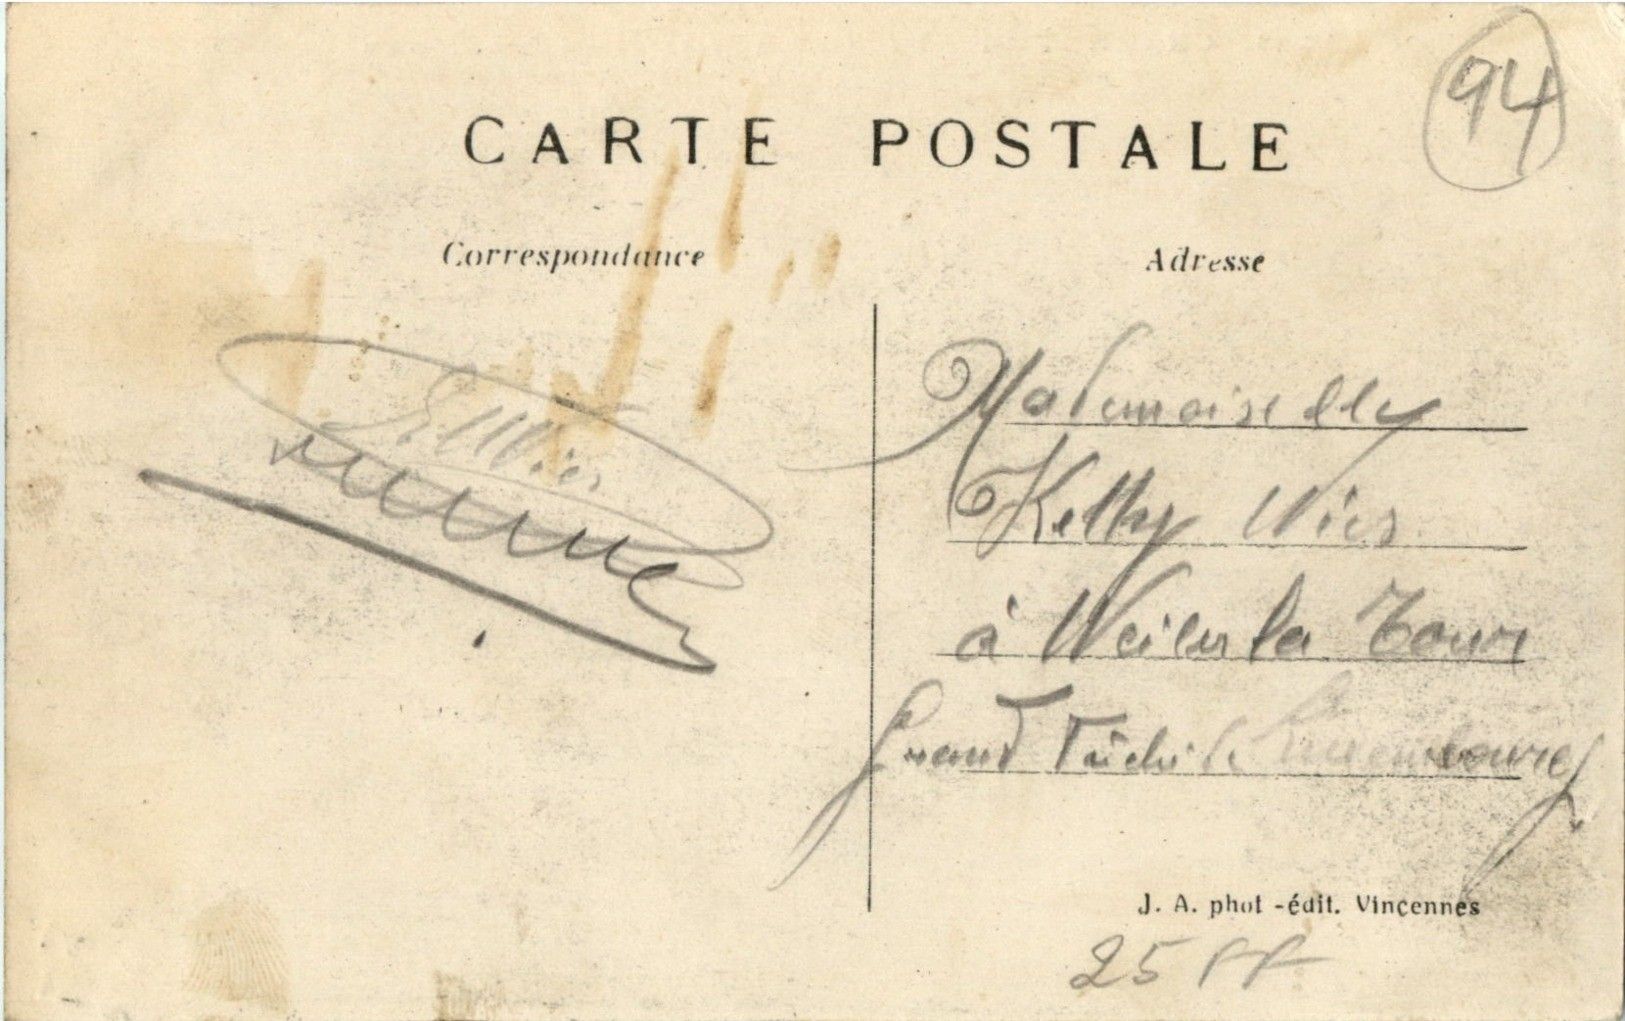 94
CARTE POSTALE
Correspondance
Adresse
Mademoiselle
Ketty Wies
à Weiler la Tour
Grand Duché de Luxembourg
J. A. phot -édit. Vincennes
25 FF